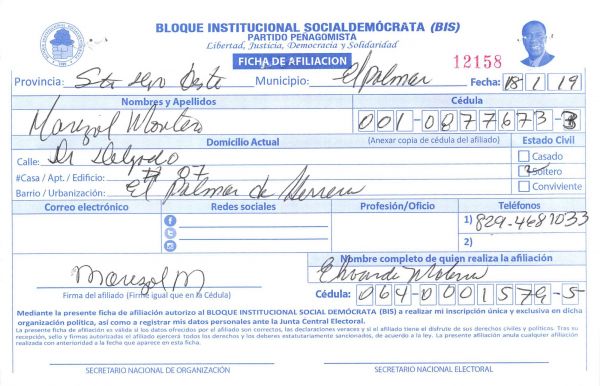 BLOQUE INSTITUCIONAL SOCIALDEMÓCRATA (BIS)
PARTIDO PEÑAGOMISTA
Libertad, Justicia, Democracia y Solidaridad
FICHA DE AFILIACION
12158
Provincia: Sto dgo Oeste Municipio: El Palmar Fecha: 18/1/19
Nombres y Apellidos Cédula
Marizol Montero 001-0877673-3
Domicilio Actual (Anexar copia de cédula del afiliado) Estado Civil
Calle: Dr Delgado Casado
#Casa / Apt. / Edificio: # 87 Soltero
Barrio / Urbanización: El Palmar de Herrera Conviviente
Correo electrónico Redes sociales Profesión/Oficio Teléfonos
1) 829-4687033
2)
Nombre completo de quien realiza la afiliación
Marizol M
Firma del afiliado (Firme igual que en la Cédula) Cédula: 064-0001579-5
Mediante la presente ficha de afiliación autorizo al BLOQUE INSTITUCIONAL SOCIAL DEMÓCRATA (BIS) a realizar mi inscripción única y exclusiva en dicha
organización política, así como a registrar mis datos personales ante la Junta Central Electoral.
La presente ficha de afiliación es válida si los datos ofrecidos por el afiliado son correctos, las declaraciones veraces y si el afiliado tiene el disfrute de sus derechos civiles y políticos. Tras su
recepción, sello y firmas autorizadas el afiliado ejercerá todos los derechos y los deberes estatutariamente sancionados, de acuerdo a la ley. La presente afiliación anula cualquier afiliación
realizada con anterioridad a la fecha que aparece en esta ficha.
SECRETARIO NACIONAL DE ORGANIZACIÓN SECRETARIO NACIONAL ELECTORAL